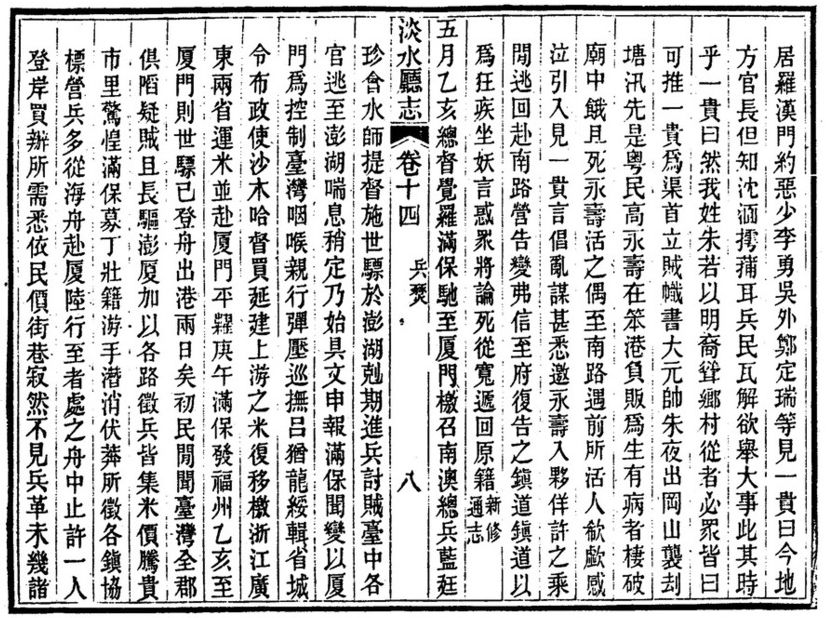 居羅漢門約惡少李勇吳外鄭定瑞等見一貴曰今地
方官長但知沈湎摴蒲耳兵民瓦解欲舉大事此其時
乎一貴曰然我姓朱若以明裔聳鄉村從者必眾皆曰
可推一貴爲渠首立賊幟書大元帥朱夜出岡山襲刦
塘汛先是粵民高永壽在笨港負販爲生有病者棲破
廟中餓且死永壽活之偶至南路遇前所活人欷歔感
泣引入見一貴言倡亂謀甚悉邀永壽入夥佯許之乘
閒逃回赴南路營告變弗信至府復告之鎭道鎭道以
爲狂疾坐妖言惑眾將論死從寬遞回原籍新修通志
五月乙亥總督覺羅滿保馳至厦門檄召南澳總兵藍廷
淡水廳志 卷十四 兵燹 八
珍會水師提督施世驃於澎湖剋期進兵討賊臺中各
官逃至澎湖喘息稍定乃始具文申報滿保聞變以厦
門爲控制臺灣咽喉親行彈壓巡撫呂猶龍綏輯省城
令布政使沙木哈督買延建上游之米復移檄浙江廣
東兩省運米並赴厦門平糶庚午滿保發福州乙亥至
厦門則世驃已登舟出港兩日矣初民閒聞臺灣全郡
俱陷疑賊且長驅澎厦加以各路徵兵皆集米價騰貴
市里驚惶滿保募丁壯籍游手潛消伏莽所徵各鎭協
標營兵多從海舟赴厦陸行至者處之舟中止許一人
登岸買辦所需悉依民價街巷寂然不見兵革未幾諸